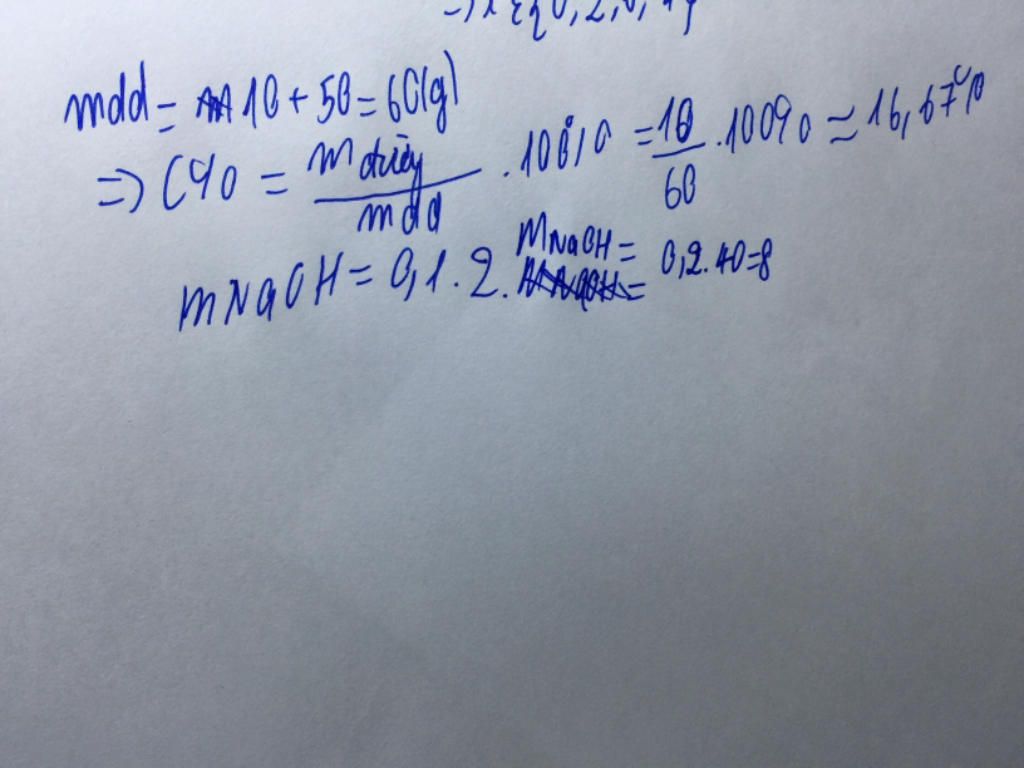 mdd = 10 + 50 = 60(g)
=> C% = mđường / mdd . 100% = 10/60 . 100% ≈ 16,67%
mNaOH = 0,1 . 2 . MNaOH = 0,2.40=8